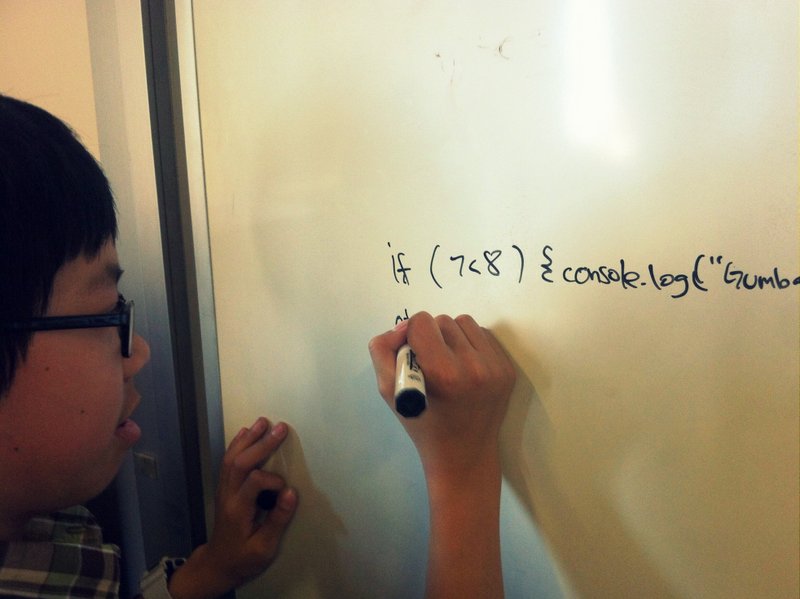 if (7<8) {console.log("Gumba